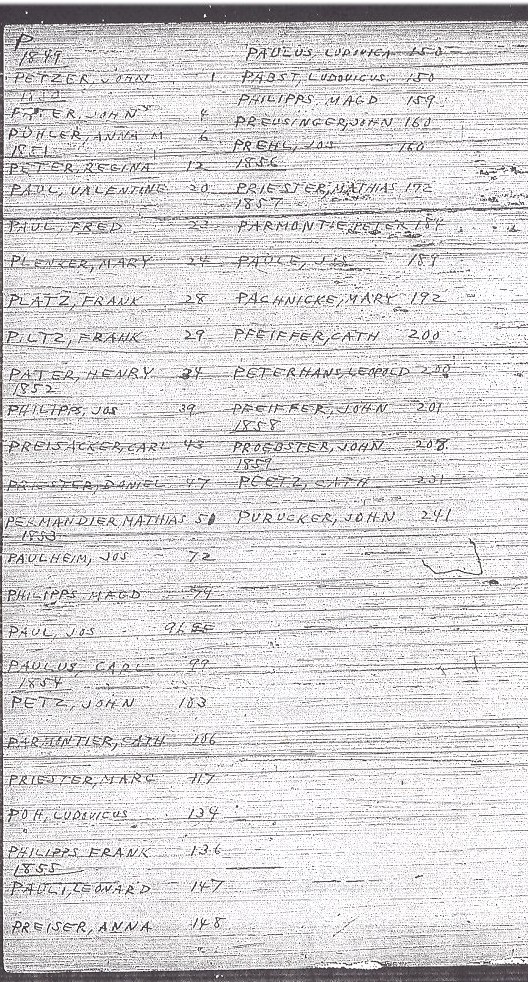 P
1849
PETZER JOHN 1
JOHN 4
PÜHLER, ANNA M 6
1851
PETER, REGINA 12
PAUL, VALENTINE 20
PAUL, FRED 23
PLENKER, MARY 24
PLATZ, FRANK 28
PILTZ, FRANK 29
PATER, HENRY 34
1852
PHILIPPS, JOS 39
PREISACKER, CARL 43
PRIESTER, DANIEL 47
PERMANDIER MATHIAS 51
1853
PAULHEIM, JOS 72
PHILIPPS MAGD 79
PAUL, JOS
PAULUS, CARL 99
1854
PETZ, JOHN 103
PARMONTIER, CATH 106
PRIESTER, MARG 117
POH, LUDOVICUS 134
PHILIPPS FRANK 136
1855
PAULI, LEONARD 147
PREISER, ANNA 148
PAULUS, LUDOVICA 150
PABST, LUDOVICUS 150
PHILIPPS, MAGD 159
PREUSINGER, JOHN 160
PREHL, JOS 160
1856
PRIESTER, MATHIAS 172
1857
PARMONTIE, PETER 184
PAULE, JOS 189
PACHNICKE, MARY 192
PFEIFFER, CATH 200
PETERHANS, LEOPOLD 200
PFEIFFER, JOHN 201
1858
PROEBSTER, JOHN 208
1859
PEETZ, CATH 231
PURUCKER, JOHN 241